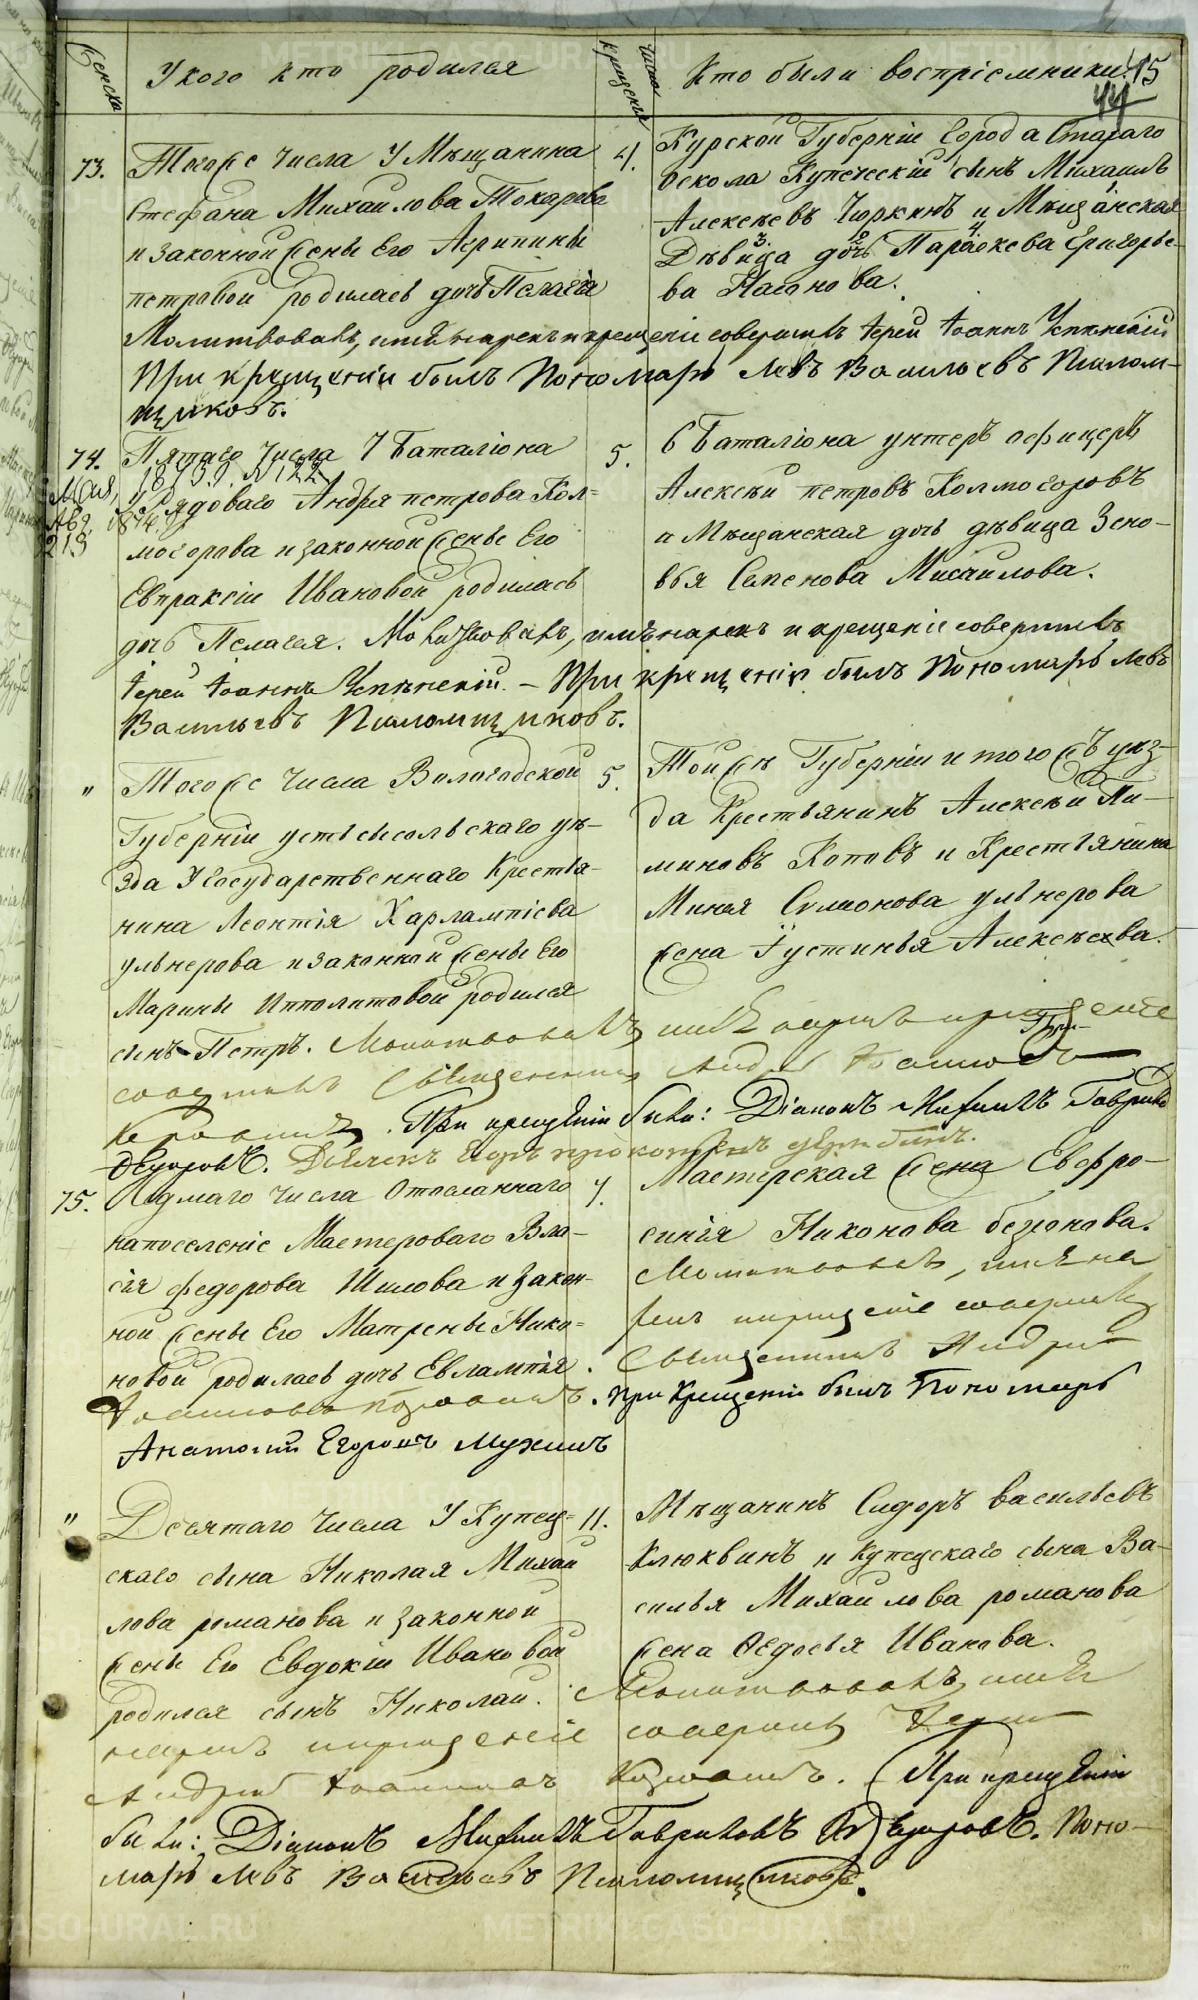 Женска
У кого кто родился
Число крещенія
Кто были воспріемники.
15
44
73.
Того же числа У Мѣщанина
Стефана Михаилова Токарева
и законной жены Его Агрипины
петровой родилась дочь Пелагія
4.
Курской Губерніи Города Стараго
Оскола Купеческій сынъ Михаилъ
Алексѣевъ Чюркинъ и Мѣщанская
Дѣвица дочь Параскева Григорье-
ва Насонова.
Молитвовалъ, имя нарекъ и крещеніе совершилъ Іерей Іоаннъ Успѣнскій
При крещеніи былъ Пономарь Левъ Васильевъ Псалом-
щиковъ.
74.
Мая, 1875. №122
Авг. 1874.
213
Пятаго Числа 7 Баталіона
У Рядоваго Андрея петрова Кол-
могорова и законной жены Его
Евпраксіи Ивановой родилась
5.
6 Баталіона унтеръ офицеръ
Алексѣй петровъ Колмогоровъ
и Мѣщанская дочь дѣвица Зено-
вья Семенова Михаилова.
дочь Пелагея. Молитвовалъ, имя нарекъ и крещеніе совершилъ
Іерей Іоаннъ Успѣнскій. – При крещеніи былъ Пономарь Левъ
Васильевъ Псаломщиковъ.
"
Того же Числа Вологодской
Губерніи устьсысольскаго уѣ-
зда У Государственнаго Крестья-
нина Леонтія Харлампіева
ульнерова и законной жены Его
Марины Ипполитовой родился
5.
Той же Губерніи и того жъ уѣз-
да Крестьянинъ Алексѣй Пи-
миновъ Поповъ и Крестьянина
Миная Симонова ульнерова
жена Іустинья Алексѣева.
сынъ Петръ. Молитвовалъ, имя нарекъ и крещеніе
совершилъ Священникъ Андрей Іоанновъ
При крещеніи были: Діаконъ Михаилъ Гавриловъ
Ѳедоровъ. Дьячекъ Егоръ
75.
Седмаго Числа Отосланнаго
на поселеніе Мастероваго Вла-
сія федорова Шилова и закон-
ной жены Его Матрены Нико-
новой родилась дочь Евлампія.
7.
Мастерская жена Евфро-
синія Никонова безносова.
Молитвовалъ, имя на
рекъ и крещеніе совершилъ
Священникъ Андрей
Іоанновъ При Крещеніи былъ Пономарь
Анатолій Егоровъ Мухинъ
"
Десятаго Числа У Купец-
скаго сына Николая Михаи
лова романова и законной
жены Его Евдокіи Ивановой
родился сынъ Николай.
11.
Мѣщанинъ Сидоръ васильевъ
Клюквинъ и Купецскаго сына Ва-
силья Михаилова романова
жена Ѳедосья Иванова.
Молитвовалъ, имя
нарекъ и крещеніе совершилъ Іерей
Андрей Іоанновъ. При крещеніи
были: Діаконъ Михаилъ Гавриловъ Ѳедоровъ. Поно-
марь Левъ Васильевъ Псаломщиковъ.
METRIKI.GASO-URAL.RU